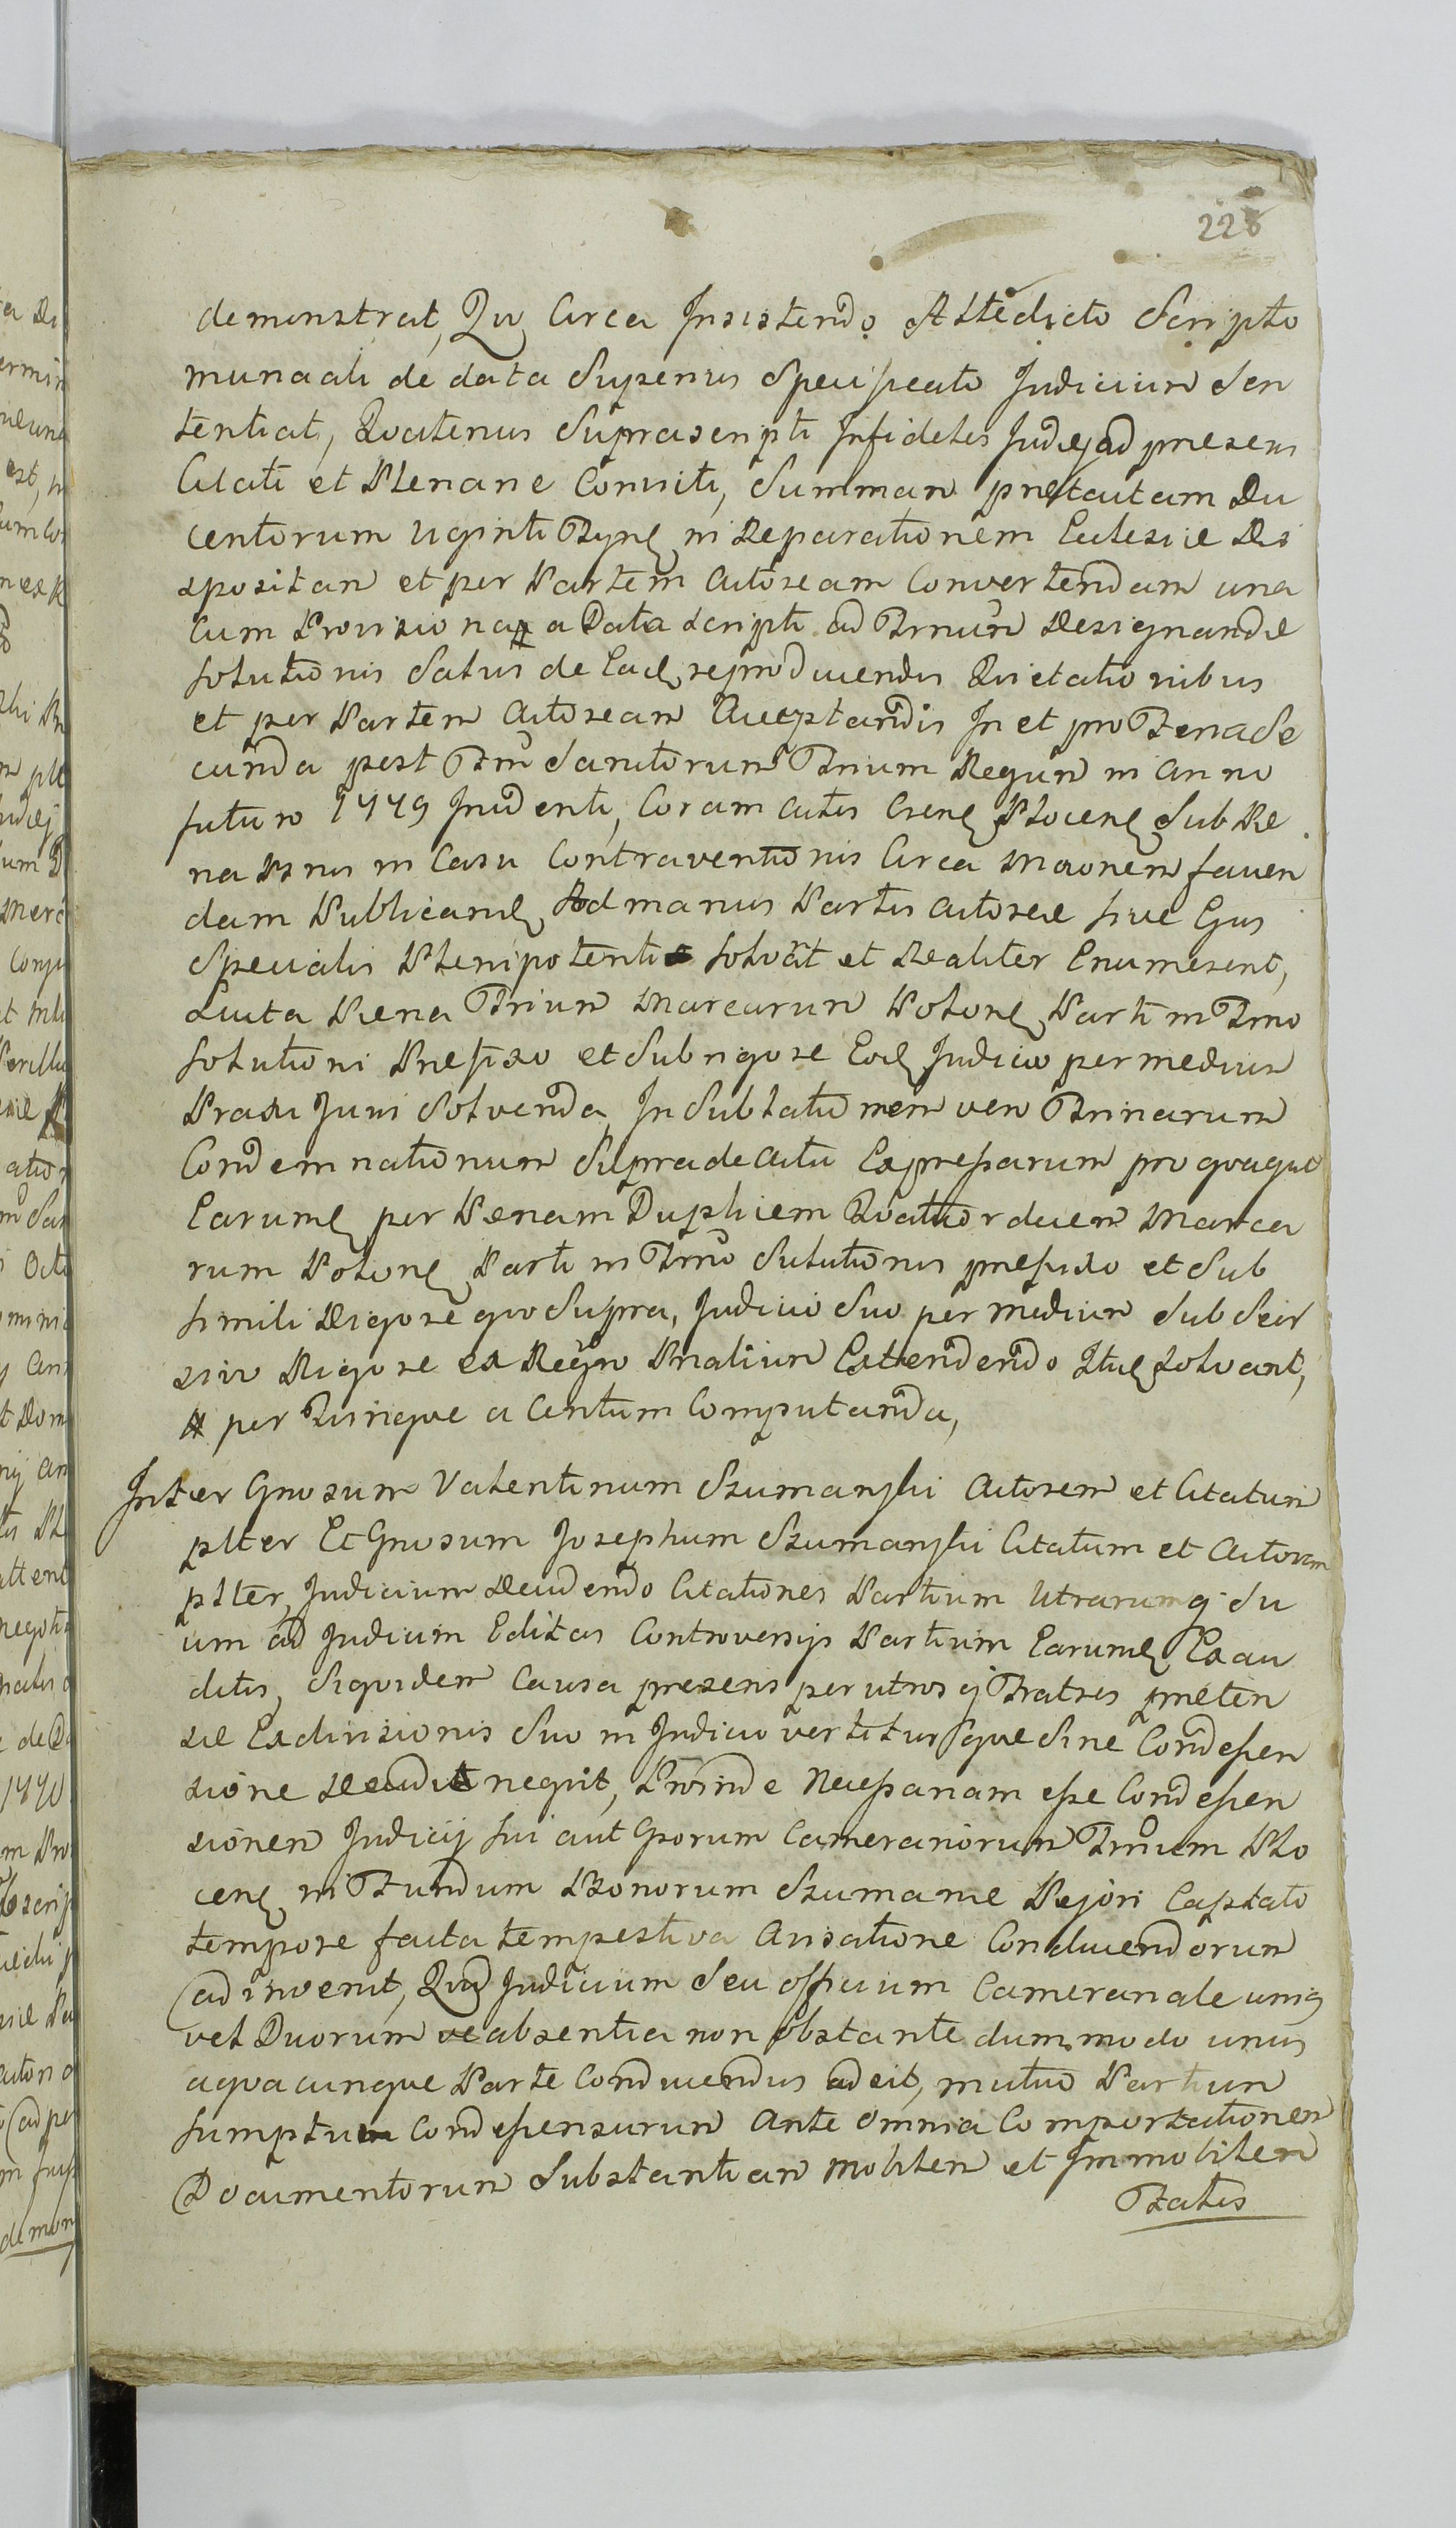 228
demonstrat, Qvo Circa Insistendo Attedicto Scripto
munaali de data Superius Specificato Judicium Sen
tentiat, Qvatenus Suprascripti Infideles Judęj ad presens
Citati et Plenarie Convicti, Summam pretactam Du
centorum Viginti Tynf in Reparationem Ecclesiæ Di
spositam et per Partem Actoream Convertendam una
Cum Provisiona # a Data Scripti ad Trnum Designandæ
Solutionis Salvis de Ead reproducendis Qvietationibus
et per Partem Actoream Acceptandis In et pro Feria Se
cunda post Ftum Sanctorum Trium Regum in Anno
futuro 1779 Incidenti, Coram Actis Csren Plocen Sub Pæ
na Bnis in Casu Contraventionis Circa Mtionem facien
dam Publicand Ad manus Partis Actoreæ sive Ejus
Specialis Plenipotenti Solvat et Realiter Enumerent,
Lucta Pæna Trium Marcarum Polon Parti in Trno
Solutioni Præfixo et Sub rigore Eod Judicio per medium
Praxi Juri Solvenda, In Sublatu mem vero Trinarum
Condemnationum Supra de Actu Expressarum pro qvaqve
Earumd per Pænam Duplicem Qvatuordecem Marca
rum Polon Parti in Trno Solutionis prefixo et Sub
Simili Rigore qvo Supra, Judicio Suo per medium Sub Scir
siv Rigore ex Regro Pnalium Extendendo Itid Solvant,
# per Qvinqve a Centum Computanda,
Inter Gnosum Valentinum Szumanski Actorem et Citatum
plter Et Gnosum Josephum Szumanski Citatum et Actorem
plter, Judicium Decidendo Citationes Partium Utrarumq Su
um ad Judicium Editas Controversijs Partium Earumd Exau
ditis, Siqvidem Causa presens per utrosq Fratres præten
sæ Exdivisionis Suo in Judicio vertitur qvæ Sine Condescen
sione Decidi neqvit, Proinde Necessariam esse Condescen
sionem Judicij sui aut Gsorum Camerariorum Trrium Plo
cen in Fundum Bonorum Szumanie Pejori Captato
tempore facta tempestiva Avisatione Conducendorum
adinvenit, Qvod Judicium Seu officium Camerariale unig
vel Duorum ve absentia non obstante dummodo unus
aqvacunqve Parte Conducendus adsit, mutuo Partium
Sumptu Condescensurum Ante Omnia Comportationem
Documentorum Substantiam Mobilem et Immobilem
Fatis